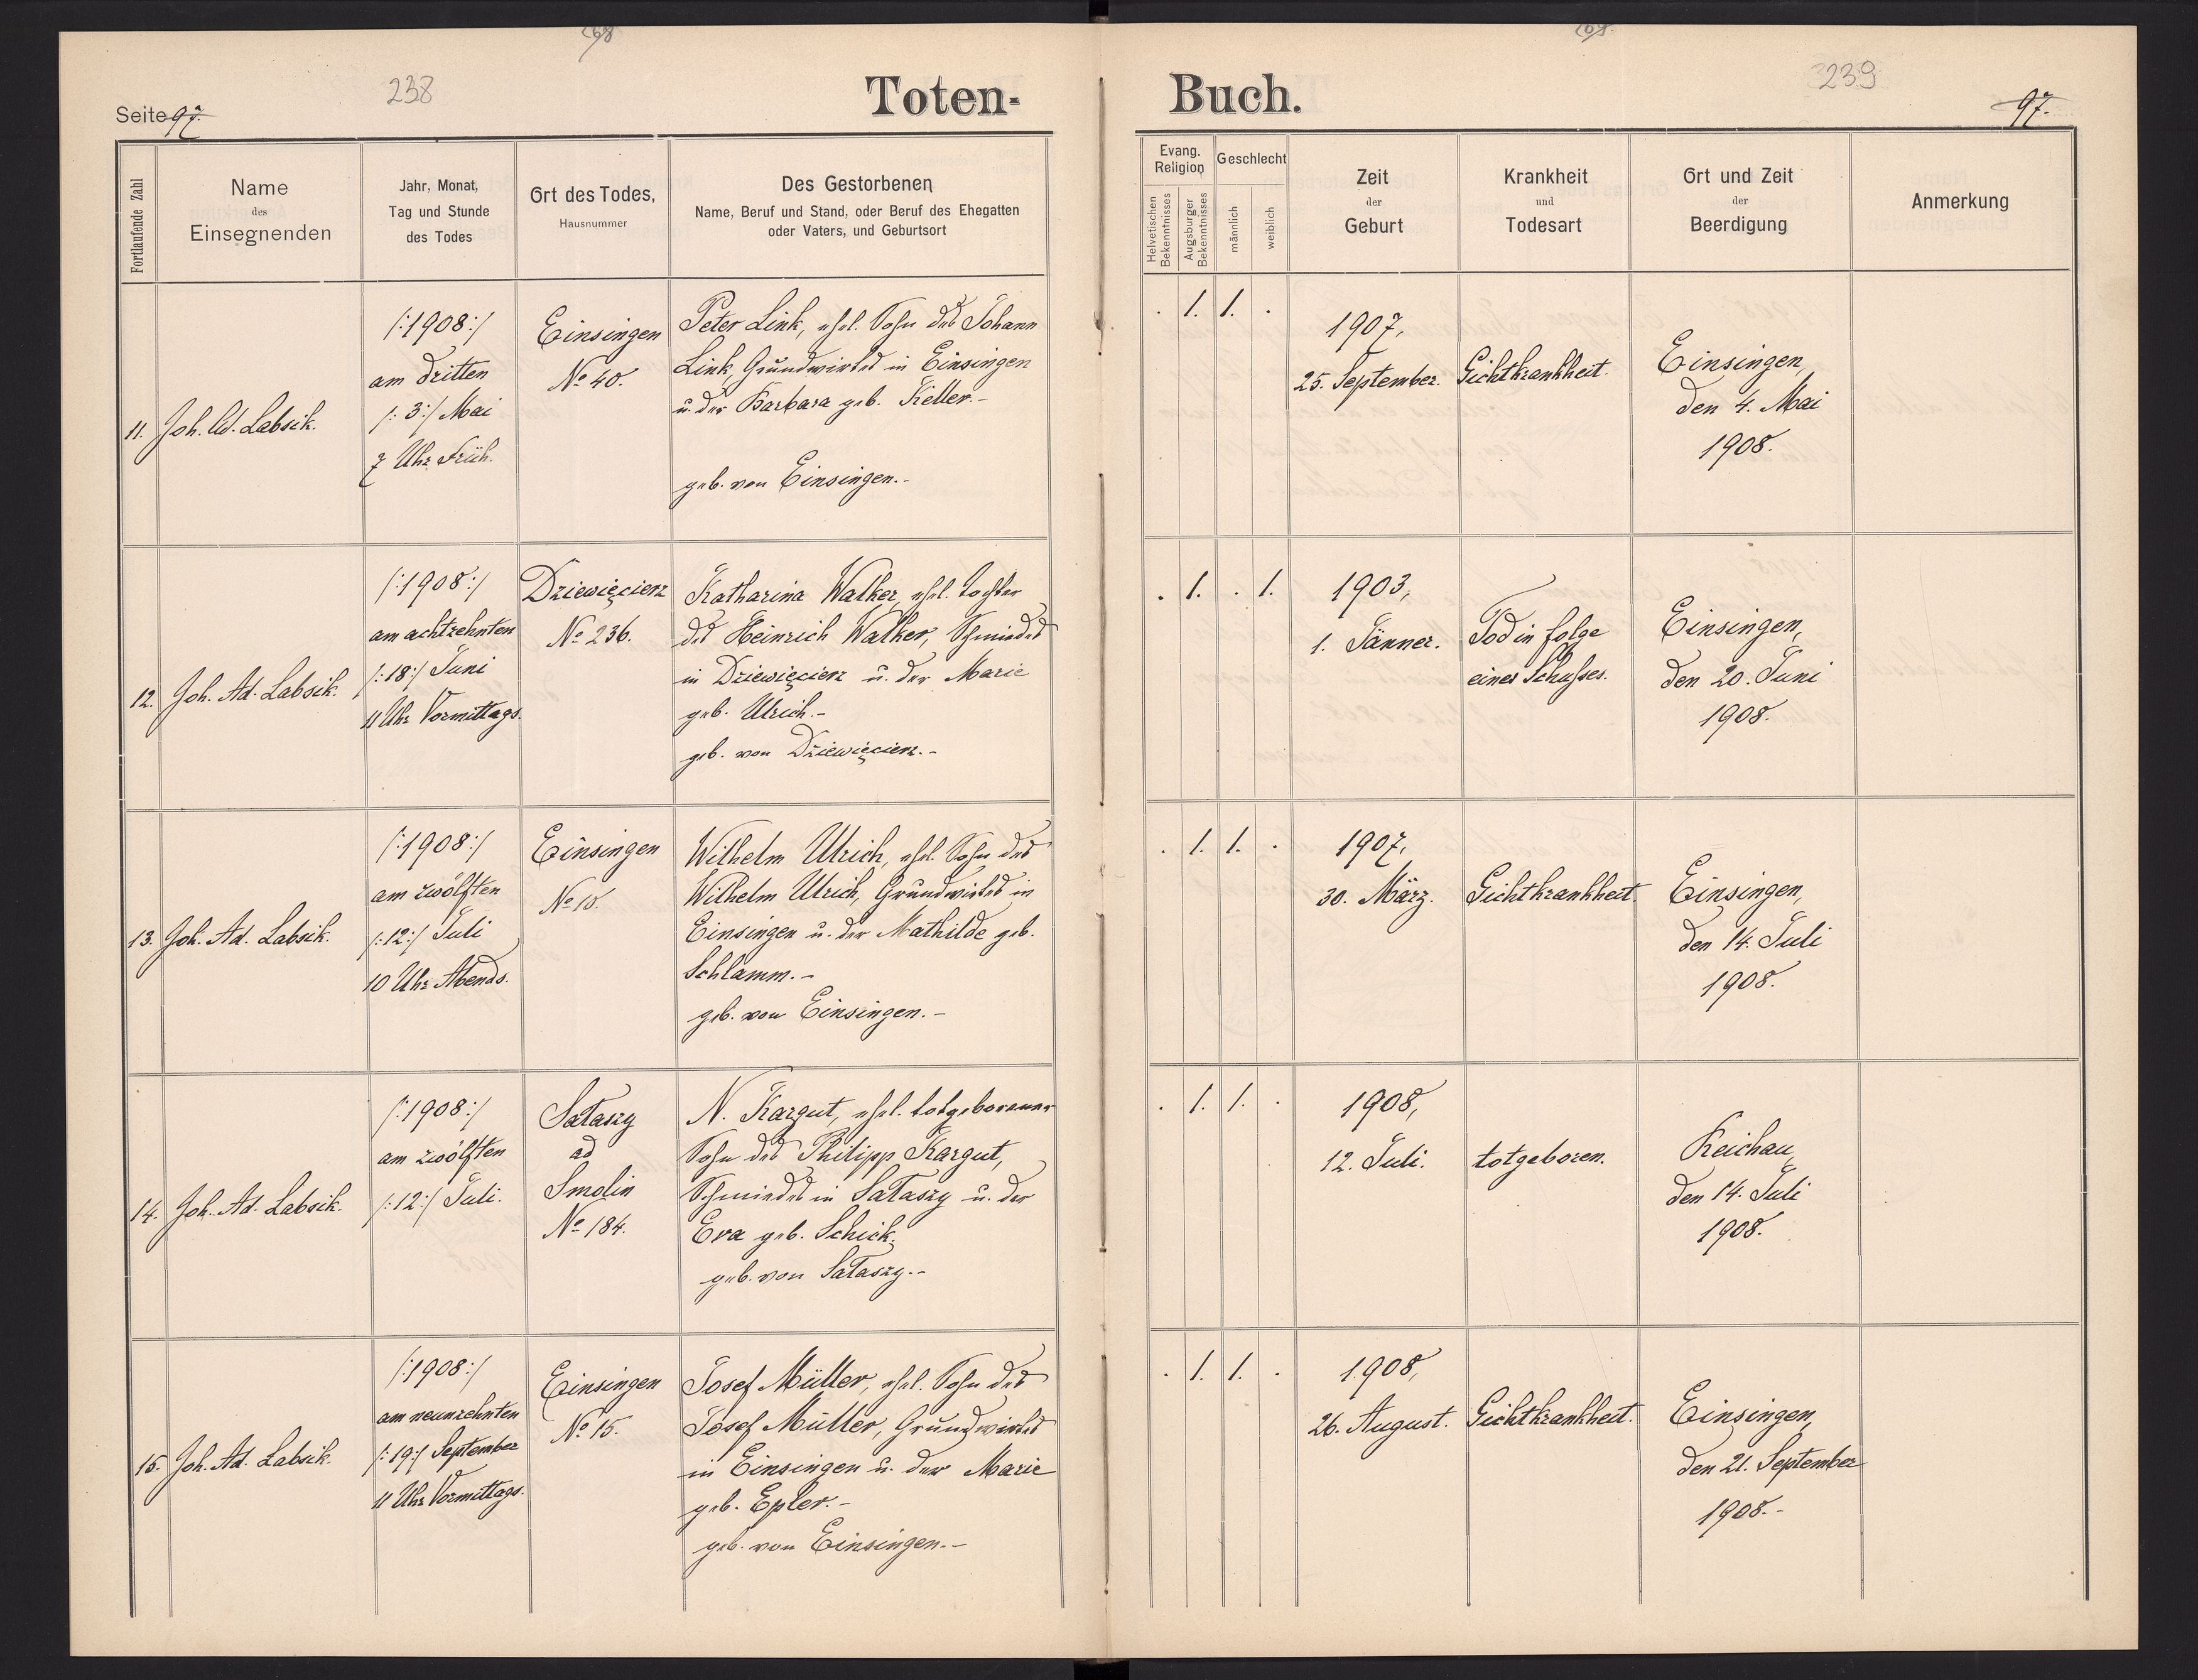 238
Seite 97.
Toten-
Fortlaufende Zahl
Name
des
Einsegnenden
Jahr, Monat,
Tag und Stunde
des Todes
Ort des Todes,
Hausnummer
Des Gestorbenen
Name, Beruf und Stand, oder Beruf des Ehegatten
oder Vaters, und Geburtsort
11.
Joh. Ad. Labsik.
/:1908:/
am dritten
/:3:/ Mai
7 Uhr Früh.
Einsingen
No 40.
Peter Link, ehel. Sohn des Johann
Link, Grundwirtes in Einsingen
u. der Barbara geb. Keller.-
geb. von Einsingen.-
12.
Joh. Ad. Labsik.
/:1908:/
am achtzehnten
/:18:/ Juni
11 Uhr Vormittags.
Dziewięcierz
No 236.
Katharina Walker, ehel. Tochter
des Heinrich Walker, Schmiedes
in Dziewięcierz u. der Marie
geb. Ulrich.-
geb. von Dziewięcierz.-
13.
Joh. Ad. Labsik.
/:1908:/
am zwölften
/:12:/ Juli
10 Uhr Abends.
Einsingen
No 10.
Wilhelm Ulrich, ehel. Sohn des
Wilhelm Ulrich, Grundwirtes in
Einsingen u. der Mathilde geb.
Schlamm.-
geb. von Einsingen.-
14.
Joh. Ad. Labsik.
/:1908:/
am zwölften
/:12:/ Juli.
Sałaszy
ad
Smolin
No 184.
N. Kargut, ehel. totgeborener
Sohn des Philipp Kargut,
Schmiedes in Sałaszy u. der
Eva geb. Schick.
geb. von Sałaszy.-
15.
Joh. Ad. Labsik.
/:1908:/
am neunzehnten
/:19:/ September
11 Uhr Vormittags.
Einsingen
No 15.
Josef Müller, ehel. Sohn des
Josef Müller, Grundwirtes
in Einsingen u. der Marie
geb. Epler.-
geb. von Einsingen.-
239
Buch.
97.
Evang.
Religion
Helvetischen
Bekenntnisses
Augsburger
Bekenntnisses
Geschlecht
männlich
weiblich
Zeit
der
Geburt
Krankheit
und
Todesart
Ort und Zeit
der
Beerdigung
Anmerkung
. 1. 1. .
1907,
25. September.
Gichtkrankheit.
Einsingen,
den 4. Mai
1908.
. 1. . 1.
1903,
1. Jänner.
Tod in folge
eines Schußes.
Einsingen,
den 20. Juni
1908.
. 1. 1. .
1907,
30. März.
Gichtkrankheit.
Einsingen,
den 14. Juli
1908.
. 1. 1. .
1908,
12. Juli.
totgeboren.
Reichau,
den 14. Juli
1908.
. 1. 1. .
1908,
26. August.
Gichtkrankheit.
Einsingen,
den 21. September
1908.-